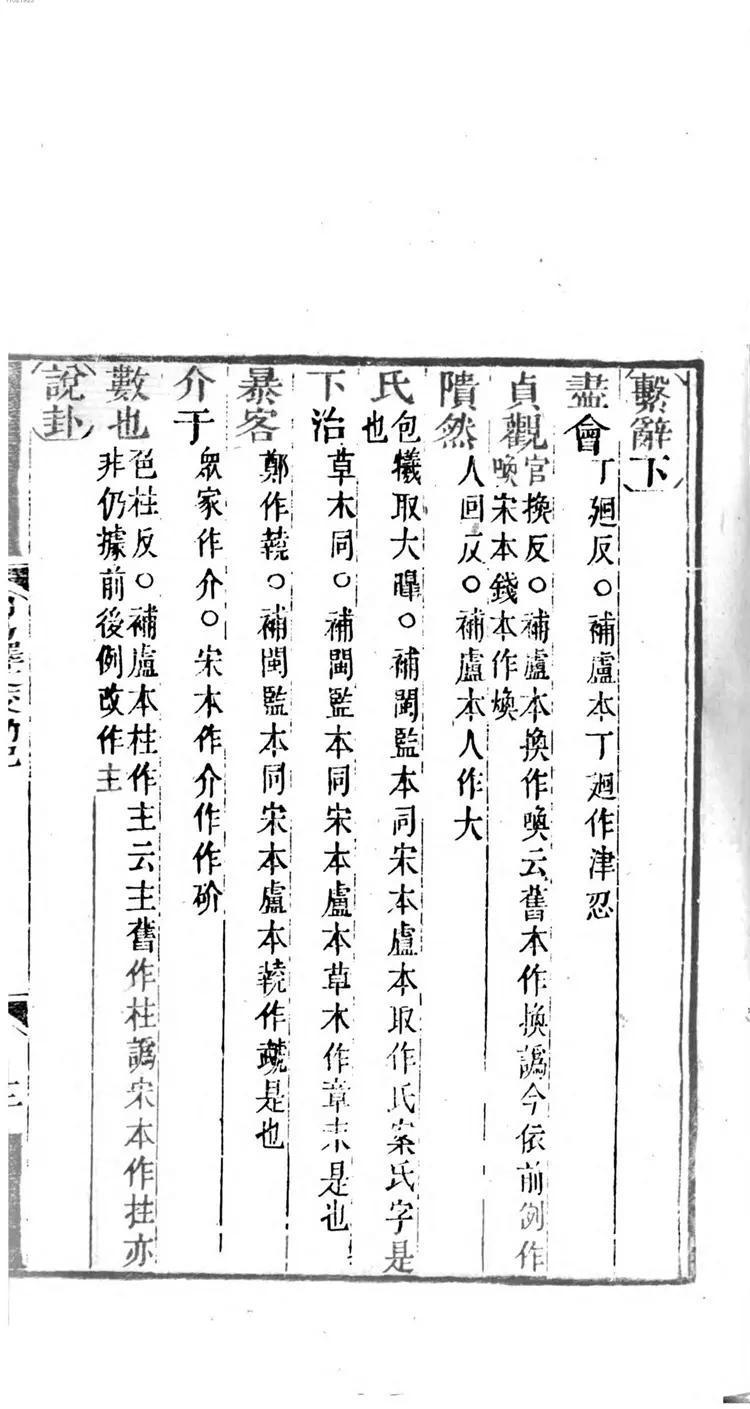 繫辭下
盡會丁廻反○補盧本丁廻作津忍
貞觀官換反○補盧本換作喚云舊本作換譌今依前例作
喚宋本錢本作煥
隤然人回反○補盧本人作大
氏包犧取大皥○補閩監本同宋本盧本取作氏案氏字是
也
下治草木同○補閩監本同宋本盧本草木作章末是也
暴客鄭作䡖○補閩監本同宋本盧本䡖作虣是也
介于眾家作介○宋本作介作作砎
數也色柱反○補盧本柱作主云主舊作柱譌宋本作拄亦
非仍據前後例改作主
說卦